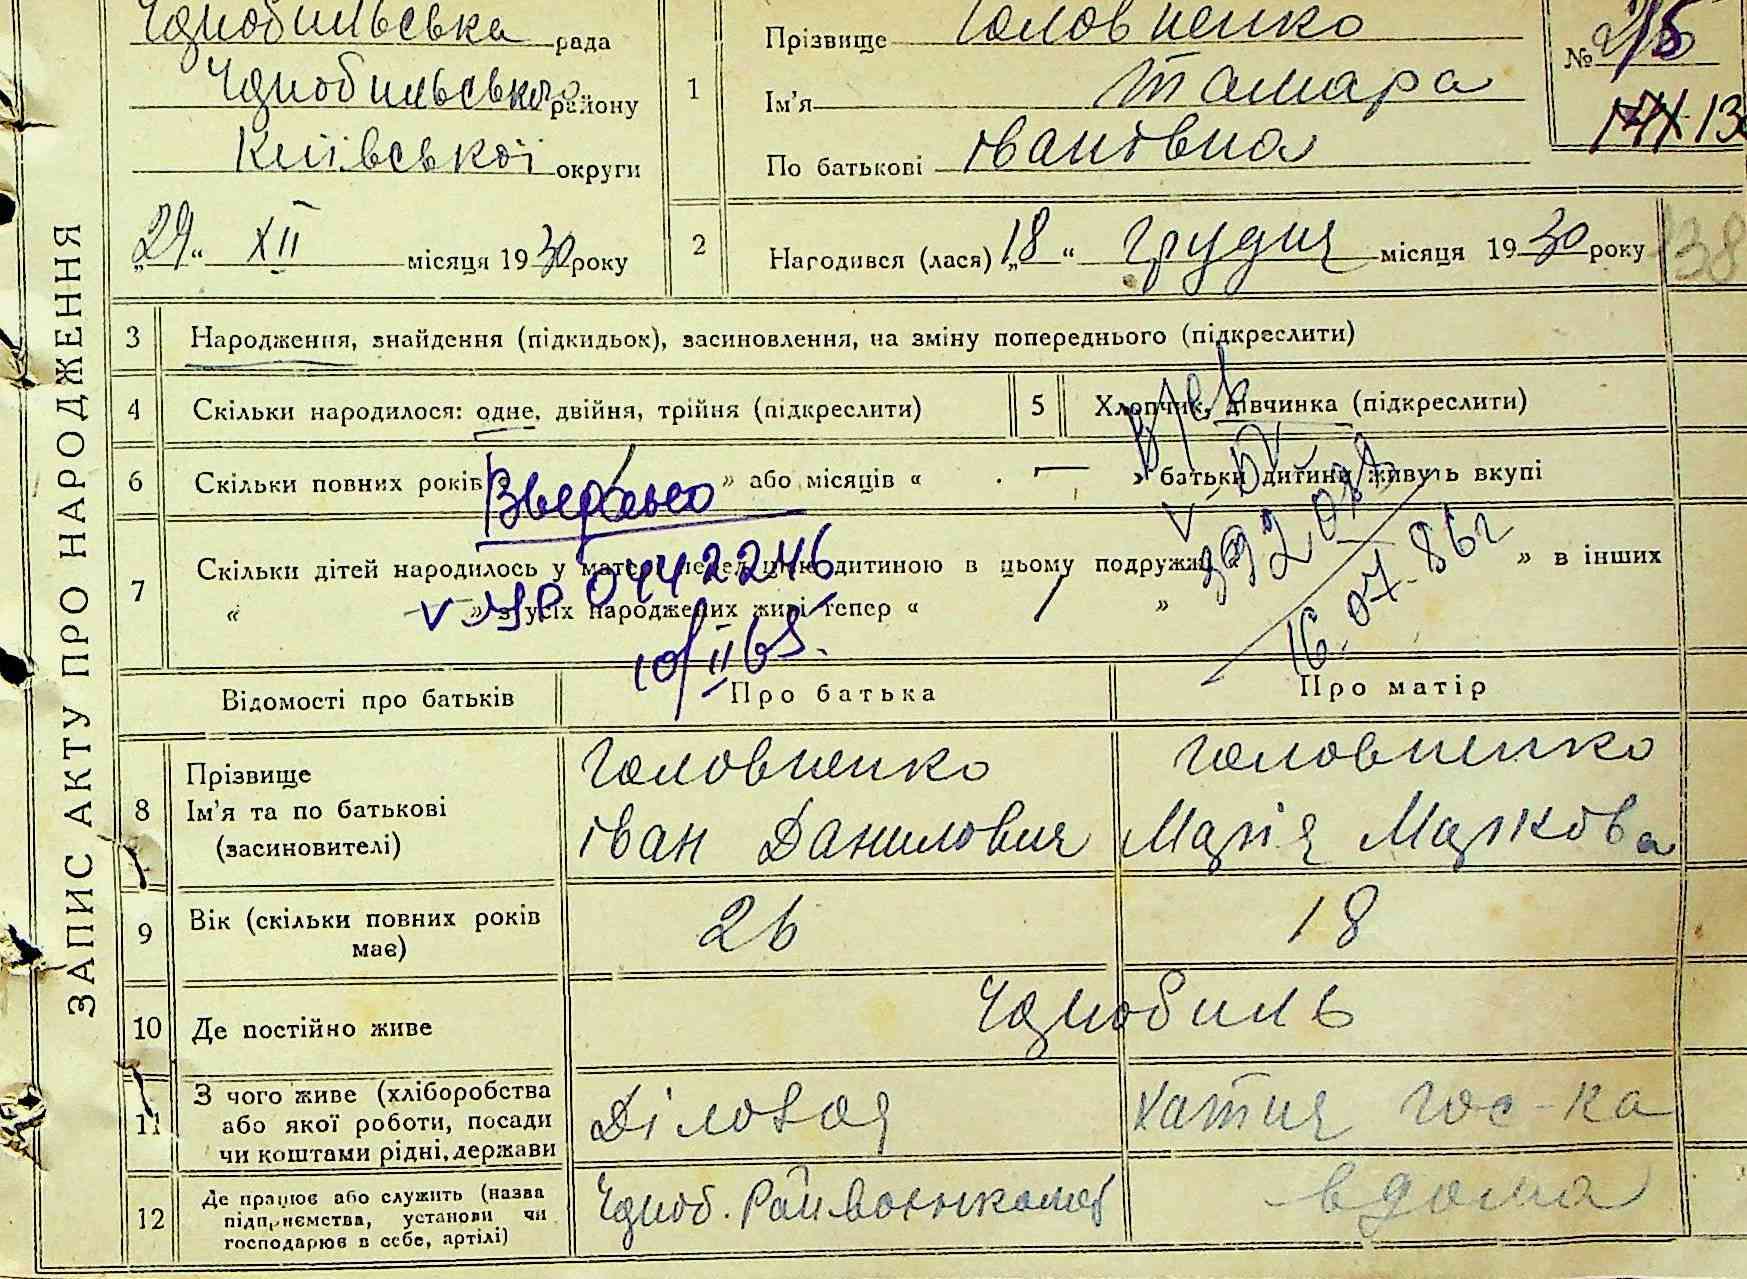 ЗАПИС АКТУ ПРО НАРОДЖЕННЯ
Чорнобильська рада
Чорнобильського району
Київської округи
„29“ XII місяця 1930 року
1
Прізвище Головненко
Ім'я Тамара
По батькові Івановна
№ 215
2
Народився (лася) „18“ грудня місяця 1930 року
138
3 Народження, знайдення (підкидьок), засиновлення, на зміну попереднього (підкреслити)
4 Скільки народилося: одне, двійня, трійня (підкреслити)
5 Хлопчик, дівчинка (підкреслити)
6 Скільки повних років » або місяців « — » батьки дитини живуть вкупі
7 Скільки дітей народилось у матері перед цією дитиною в цьому подружжі » в інших
« — » з усіх народжених живі тепер « »
10/II 65.
16.07.86г
Відомості про батьків
Про батька
Про матір
8 Прізвище
Ім'я та по батькові
(засиновителі)
Головненко
Іван Данилович
Головненко
Марія Маркова
9 Вік (скільки повних років має)
26
18
10 Де постійно живе
Чорнобиль
11 З чого живе (хліборобства
або якої роботи, посади
чи коштами рідні, держави
Діловод
Хатня гос-ка
12 Де працює або служить (назва
підприємства, установи чи
господарює в себе, артілі)
Чорноб. Райвоєнкомат
вдома